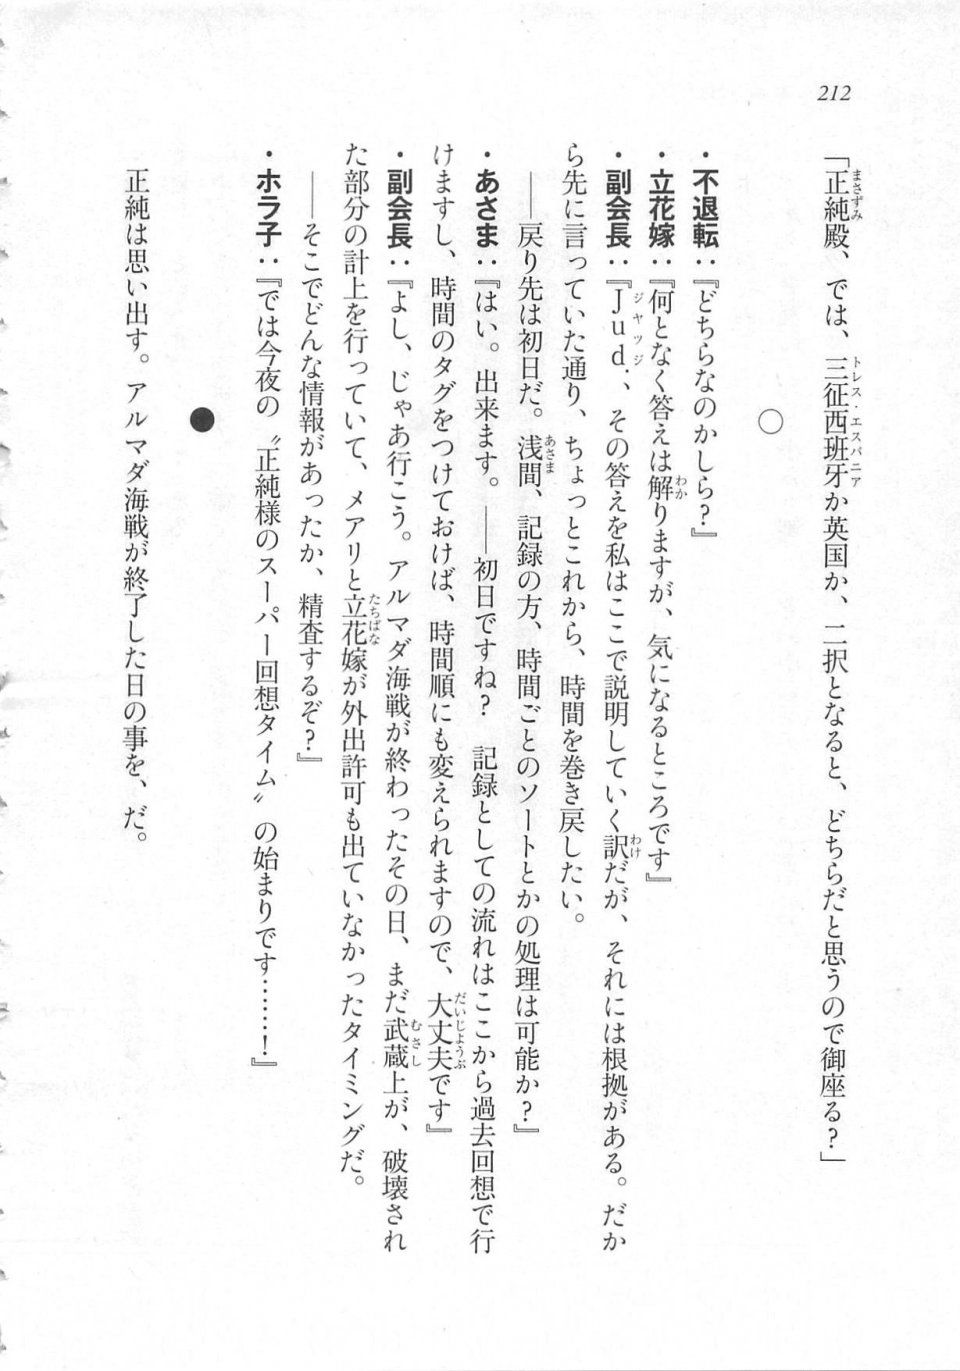 212
「正純殿、では、三征西班牙か英国か、二択となると、どちらだと思うので御座る？」
○
・不退転：『どちらなのかしら？』
・立花嫁：『何となく答えは解りますが、気になるところです』
・副会長：『Ｊｕｄ．、その答えを私はここで説明していく訳だが、それには根拠がある。だか
ら先に言っていた通り、ちょっとこれから、時間を巻き戻したい。
――戻り先は初日だ。浅間、記録の方、時間ごとのソートとかの処理は可能か？』
・あさま：『はい。出来ます。――初日ですね？　記録としての流れはここから過去回想で行
けますし、時間のタグをつけておけば、時間順にも変えられますので、大丈夫です』
・副会長：『よし、じゃあ行こう。アルマダ海戦が終わったその日、まだ武蔵上が、破壊され
た部分の計上を行っていて、メアリと立花嫁が外出許可も出ていなかったタイミングだ。
――そこでどんな情報があったか、精査するぞ？』
・ホラ子：『では今夜の〝正純様のスーパー回想タイム〟の始まりです……！』
●
正純は思い出す。アルマダ海戦が終了した日の事を、だ。